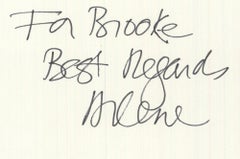 For Brooke
Best Regards
Arlene